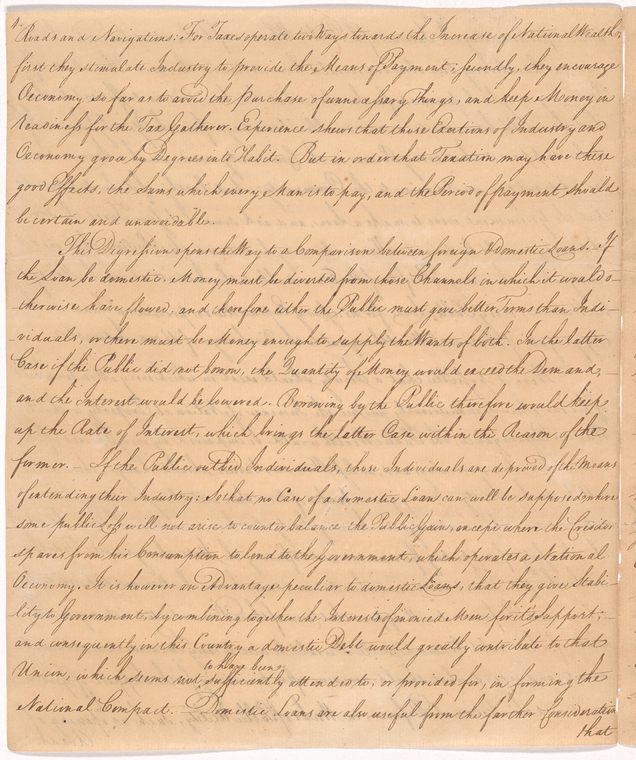 4.
Roads and Navigations: For Taxes operate two Ways towards the Increase of National Wealth;
first they stimulate Industry to provide the Means of Payment; secondly, they encourage
Oeconomy so far as to avoid the Purchase of unnecessary Things, and keep Money in
Readiness for the Tax Gatherer. Experience shews that those Exertions of Industry and
Oeconomy grow by Degrees into Habit. But in order that Taxation may have these
good Effects, the Sums which every Man is to pay, and the Period of payment should
be certain and unavoidable.
This Digression opens the Way to a Comparison between foreign & Domestic Loans. If
the Loan be domestic. Money must be diverted from those Channels in which it would o-
therwise have flowed, and therefore either the Public must give better Terms than Indi-
-viduals, or there must be Money enough to supply the Wants of both. In the latter
Case if the Public did not borrow, the Quantity of Money would exceed the Demand, -
and the Interest would be lowered. Borrowing by the Public therefore would keep
up the Rate of Interest, which brings the latter Case within the Reason of the
former. - If the Public outbid Individuals, those Individuals are deprived of the Means
of extending their Industry: So that no Case of a domestic Loan can well be supposed, where
some public Loss will not arise to counterbalance the Public Gain, except where the Creditor
spares from his Consumption to lend to the Government, which operates a National
Oeconomy. It is however an Advantage peculiar to domestic Loans, that they give Stabi-
-lity to Government, by combining together the Interests of monied Men for it's Support; -
and consequently in this Country a domestic Debt would greatly contribute to that
Union, which seems not to have been sufficiently attended to, or provided for, in forming the
National Compact. - Domestic Loans are also useful from the farther Consideration
that